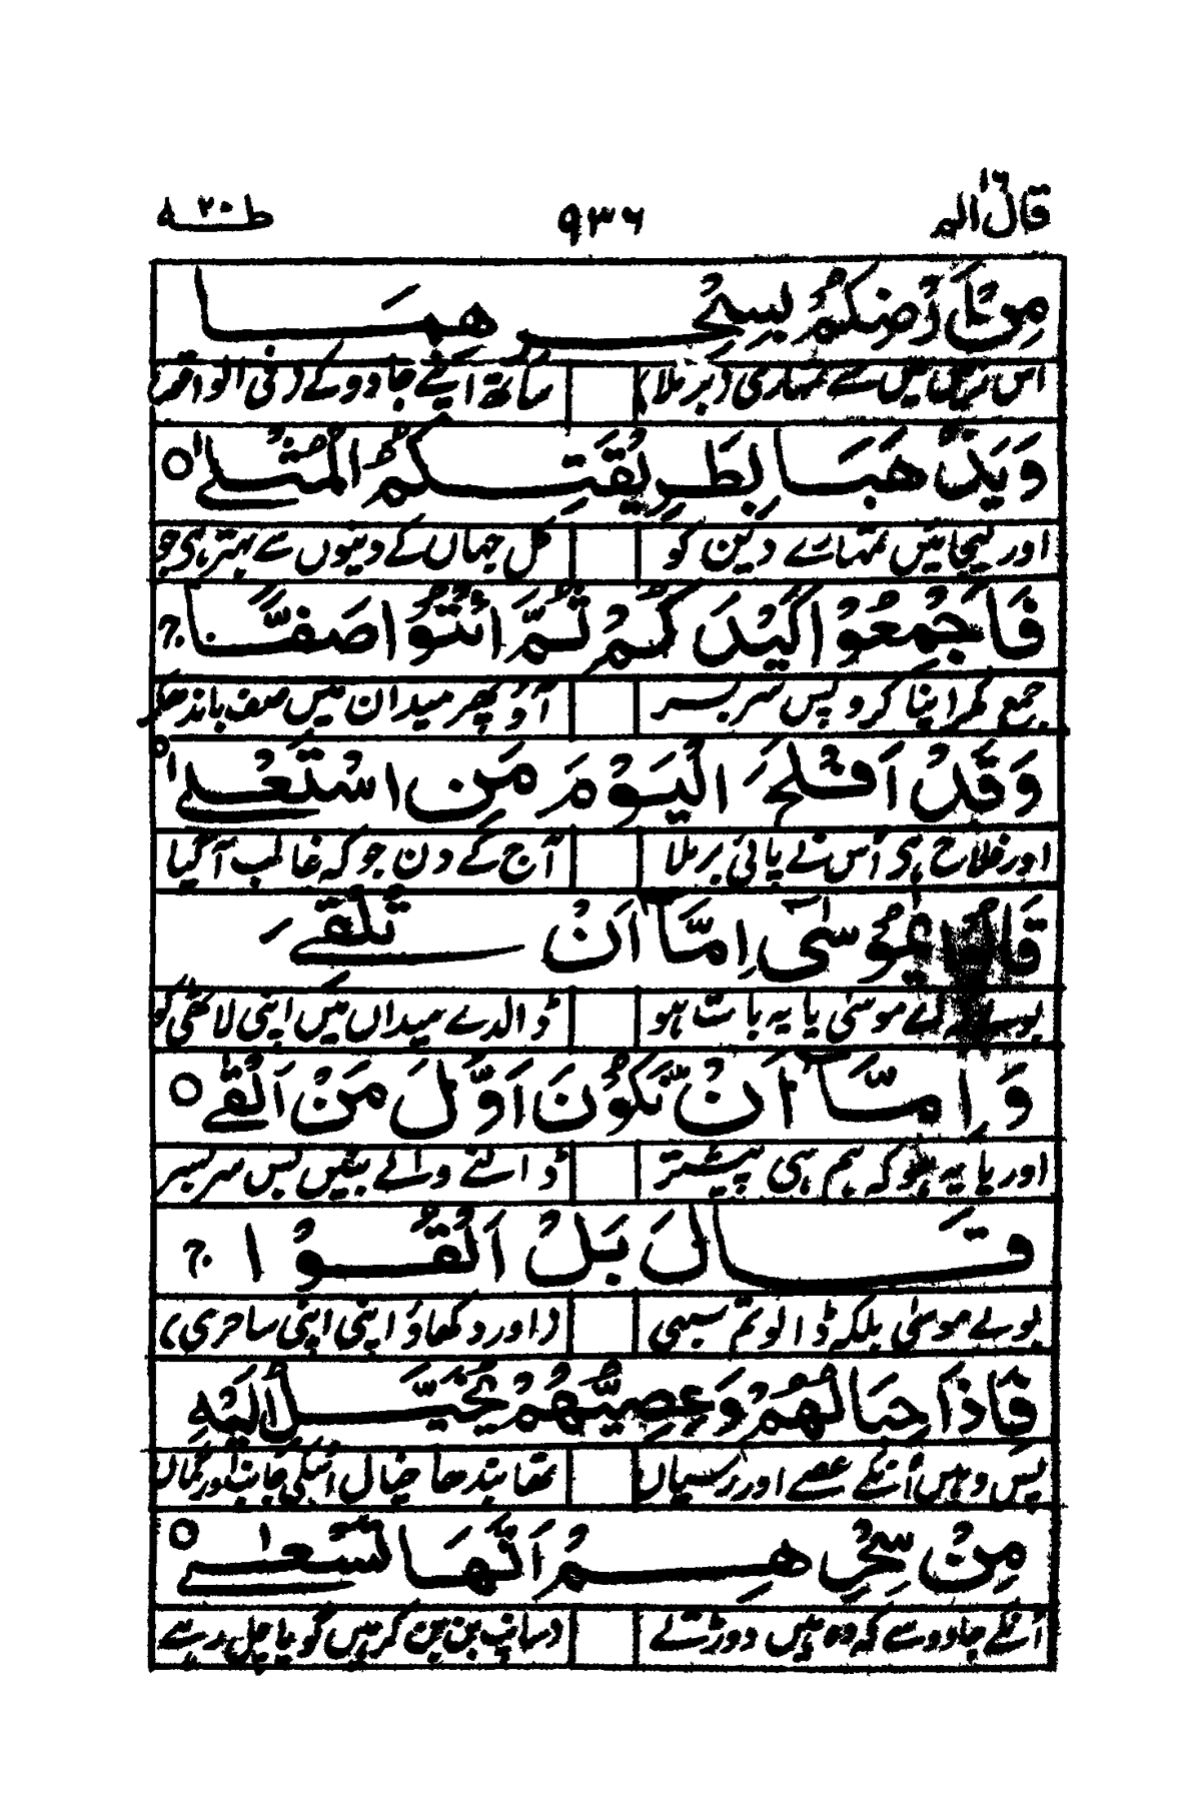 قال الم ١٦ ٩٣٦ طٰهٰ ٢٠
مِنْ اَرْضِكُمْ بِسِحْرِهِمَا
اس سرزمیں میں سے تمہاری (برملا) ساتھ اپنے جادو کے
وَيَذْهَبَا بِطَرِيْقَتِكُمُ الْمُثْلٰى ○
اور لیجائیں تمہارے دین کو کل جہاں کے دینوں سے بہتر ہی جو
فَاَجْمِعُوْا كَيْدَكُمْ ثُمَّ ائْتُوْا صَفًّا ج
جمع کر اپنا کرو پس سربسر آؤ پھر میدان میں صف باندھکر
وَقَدْ اَفْلَحَ الْيَوْمَ مَنِ اسْتَعْلٰى ○
اور فلاح ہی اُس نے پائی برملا آج کے دن جو کہ غالب آگیا
قَالُوْا يٰمُوْسٰٓى اِمَّآ اَنْ تُلْقِيَ
بولے اے موسیٰ یا یہ بات ہو ڈالدے میداں میں اپنی لاٹھی کو
وَاِمَّآ اَنْ نَّكُوْنَ اَوَّلَ مَنْ اَلْقٰى ○
اور یا یہ ہو کہ ہم ہی پیشتر ڈالنے والے بنیں پس سربسر
قَالَ بَلْ اَلْقُوْا ج
بولے موسیٰ بلکہ ڈالو تم سبھی (اور دکھاؤ اپنی اپنی ساحری)
فَاِذَا حِبَالُهُمْ وَعِصِيُّهُمْ يُخَيَّلُ اِلَيْهِ
پس وہیں اُنکے عصے اور رسیاں تھا بندھا خیال
مِنْ سِحْرِهِمْ اَنَّهَا تَسْعٰى ○
اُنکے جادو سے کہ وہ ہیں دوڑتے سانپ بن بن کر ہیں گویا چل رہے